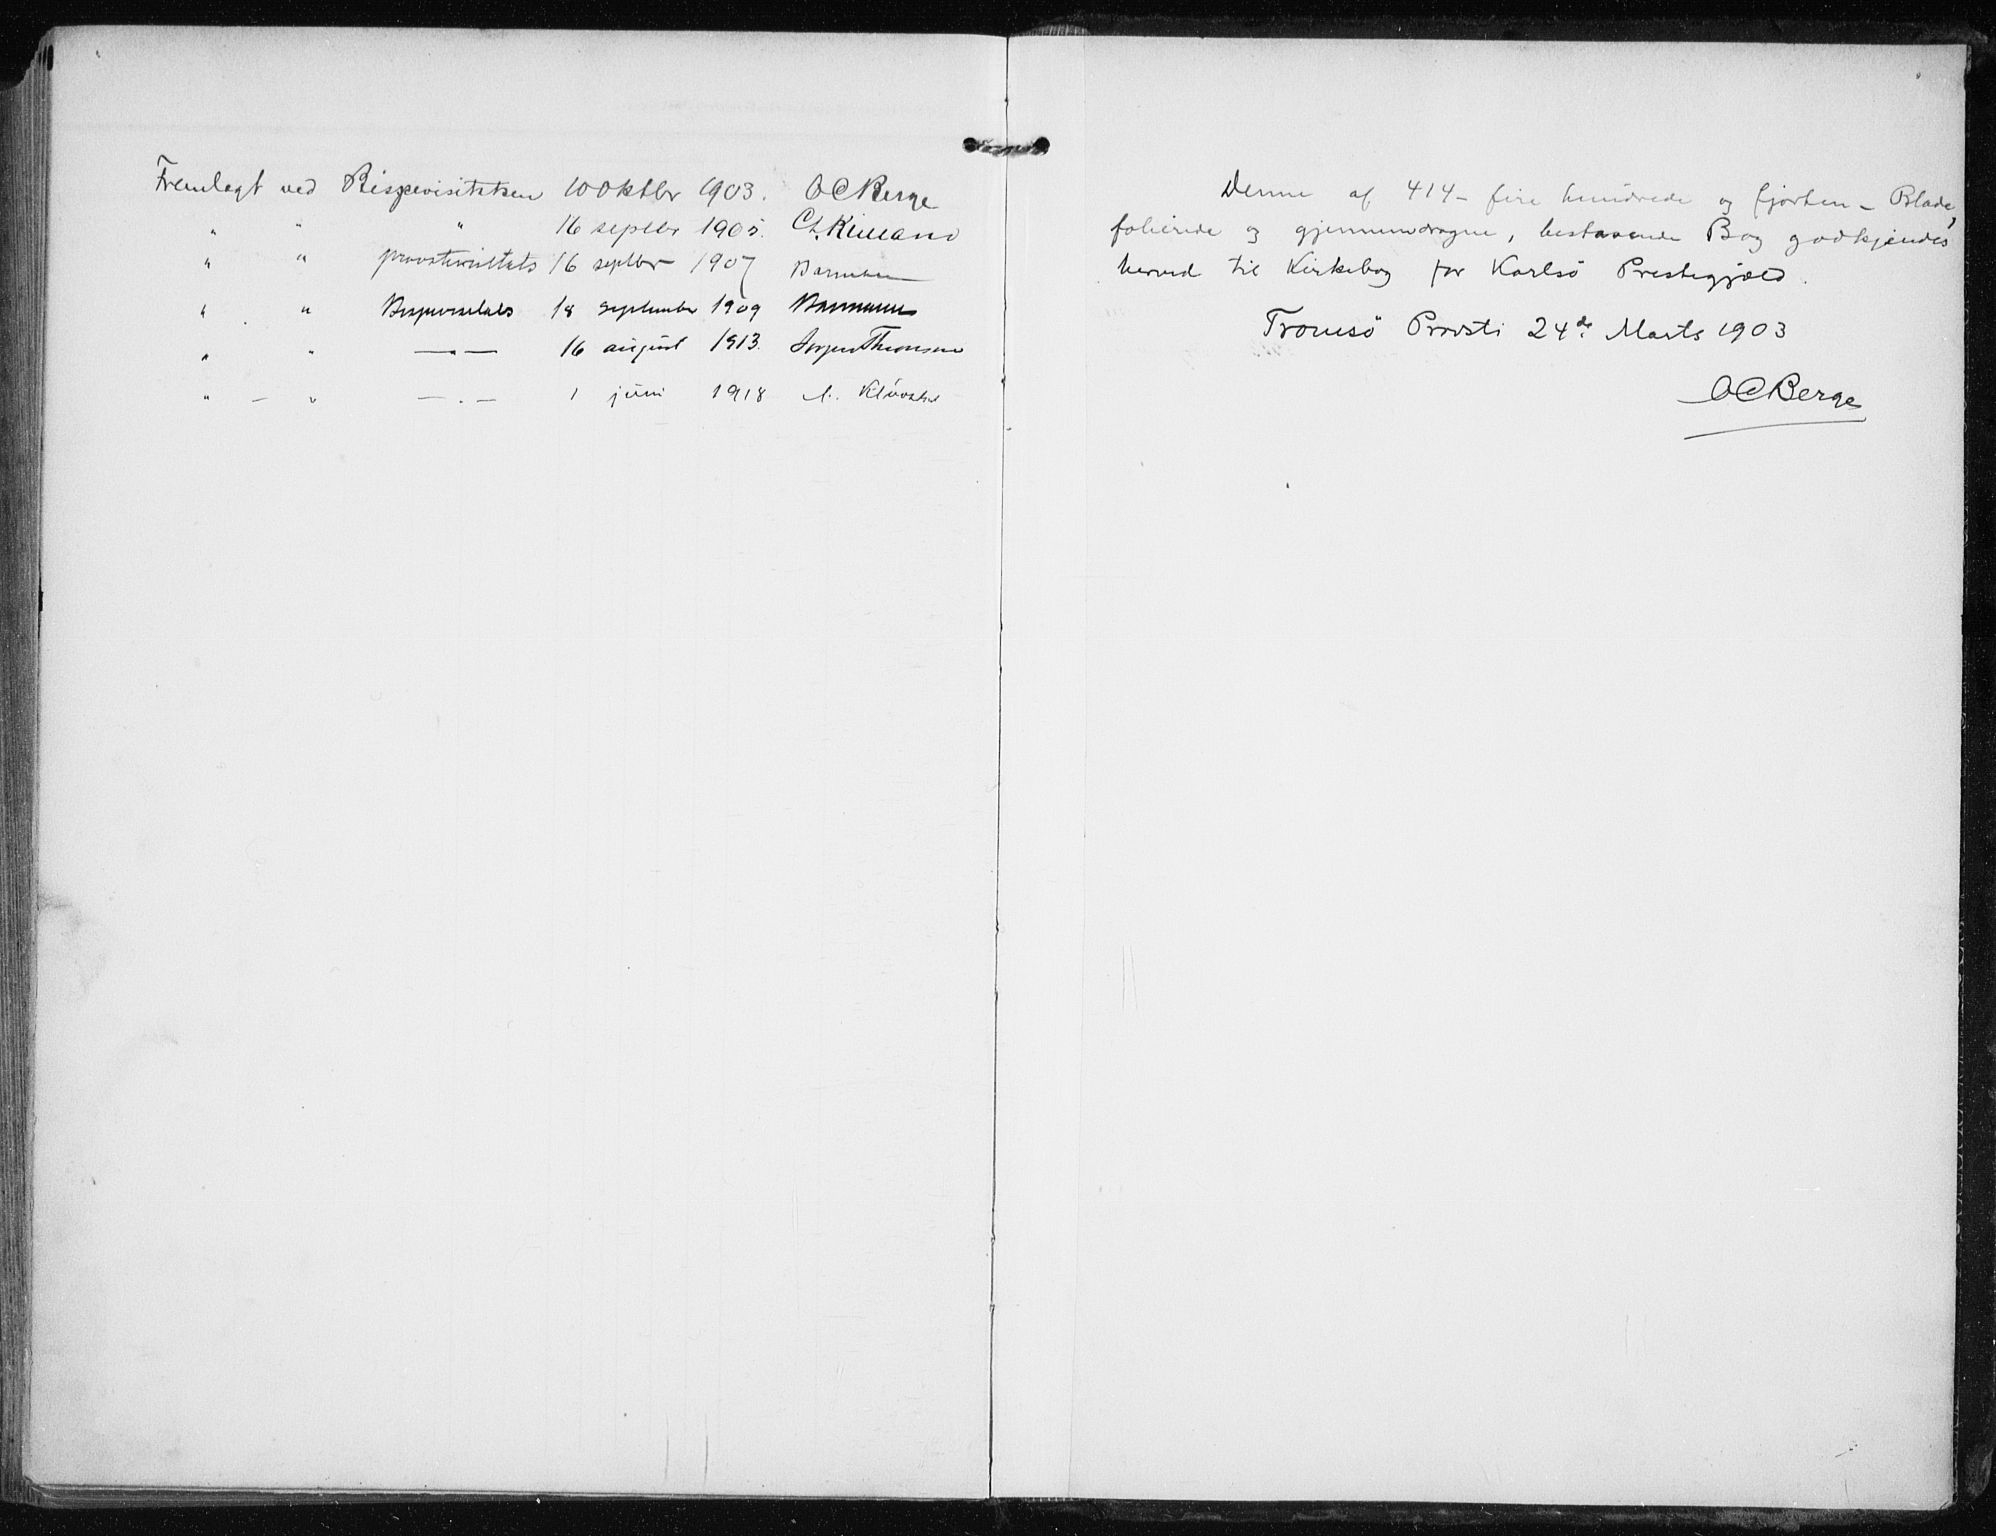 Fremlagt ved Bispevisitatsen 10 Oktbr 1903. OCBerge
" " " 16 septbr 1905. Chr. Kielland
" " provstevisitats 16 septbr 1907
" " Bispevisitats 18 september 1909
" " —"— 16 august 1913.
" — " —"— 1 juni 1918
Denne af 414 - fire hundrede og fjorten - Blade,
folierede og gjennemdragne, bestaaende Bog godkjendes
herved til Kirkebog for Karlsö Prestegjæld.
Tromsö Provsti 24de Marts 1903
OCBerge